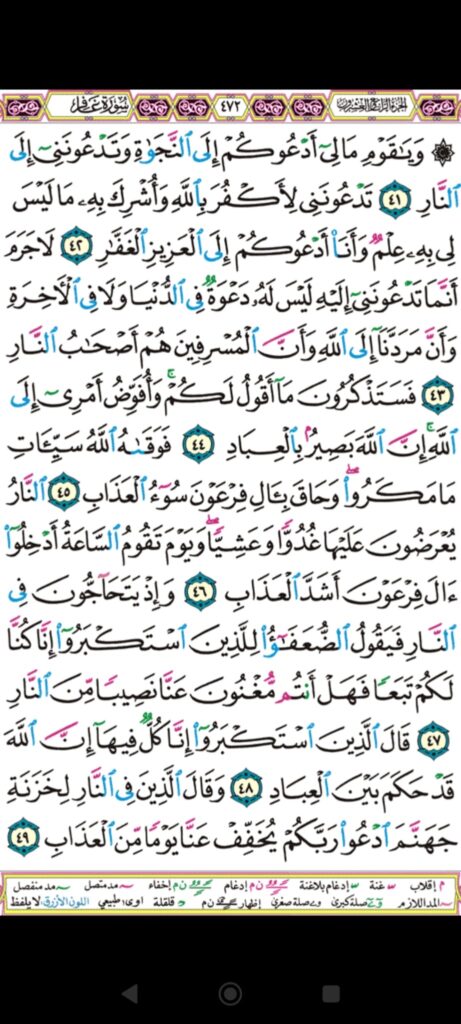 الجزء الرابع والعشرون ٤٧٢ سورة غافر
۞ وَيَٰقَوۡمِ مَالِيٓ أَدۡعُوكُمۡ إِلَى ٱلنَّجَوٰةِ وَتَدۡعُونَنِيٓ إِلَى
ٱلنَّارِ ٤١ تَدۡعُونَنِي لِأَكۡفُرَ بِٱللَّهِ وَأُشۡرِكَ بِهِۦ مَا لَيۡسَ
لِي بِهِۦ عِلۡمٞ وَأَنَا۠ أَدۡعُوكُمۡ إِلَى ٱلۡعَزِيزِ ٱلۡغَفَّٰرِ ٤٢ لَا جَرَمَ
أَنَّمَا تَدۡعُونَنِيٓ إِلَيۡهِ لَيۡسَ لَهُۥ دَعۡوَةٞ فِي ٱلدُّنۡيَا وَلَا فِي ٱلۡأٓخِرَةِ
وَأَنَّ مَرَدَّنَآ إِلَى ٱللَّهِ وَأَنَّ ٱلۡمُسۡرِفِينَ هُمۡ أَصۡحَٰبُ ٱلنَّارِ
٤٣ فَسَتَذۡكُرُونَ مَآ أَقُولُ لَكُمۡۚ وَأُفَوِّضُ أَمۡرِيٓ إِلَى
ٱللَّهِۚ إِنَّ ٱللَّهَ بَصِيرُۢ بِٱلۡعِبَادِ ٤٤ فَوَقَىٰهُ ٱللَّهُ سَيِّـَٔاتِ
مَا مَكَرُواْۖ وَحَاقَ بِـَٔالِ فِرۡعَوۡنَ سُوٓءُ ٱلۡعَذَابِ ٤٥ ٱلنَّارُ
يُعۡرَضُونَ عَلَيۡهَا غُدُوّٗا وَعَشِيّٗاۖ وَيَوۡمَ تَقُومُ ٱلسَّاعَةُ أَدۡخِلُوٓاْ
ءَالَ فِرۡعَوۡنَ أَشَدَّ ٱلۡعَذَابِ ٤٦ وَإِذۡ يَتَحَآجُّونَ فِي
ٱلنَّارِ فَيَقُولُ ٱلضُّعَفَٰٓؤُاْ لِلَّذِينَ ٱسۡتَكۡبَرُوٓاْ إِنَّا كُنَّا
لَكُمۡ تَبَعٗا فَهَلۡ أَنتُم مُّغۡنُونَ عَنَّا نَصِيبٗا مِّنَ ٱلنَّارِ
٤٧ قَالَ ٱلَّذِينَ ٱسۡتَكۡبَرُوٓاْ إِنَّا كُلّٞ فِيهَآ إِنَّ ٱللَّهَ
قَدۡ حَكَمَ بَيۡنَ ٱلۡعِبَادِ ٤٨ وَقَالَ ٱلَّذِينَ فِي ٱلنَّارِ لِخَزَنَةِ
جَهَنَّمَ ٱدۡعُواْ رَبَّكُمۡ يُخَفِّفۡ عَنَّا يَوۡمٗا مِّنَ ٱلۡعَذَابِ ٤٩
م إقلاب غنة إدغام بلاغنة ن م إدغام ن م إخفاء مد متصل مد منفصل
المد اللازم صلة كبرى صلة صغرى إظهار ن م قلقلة اوى: طبيعي اللون الأزرق: لا يلفظ